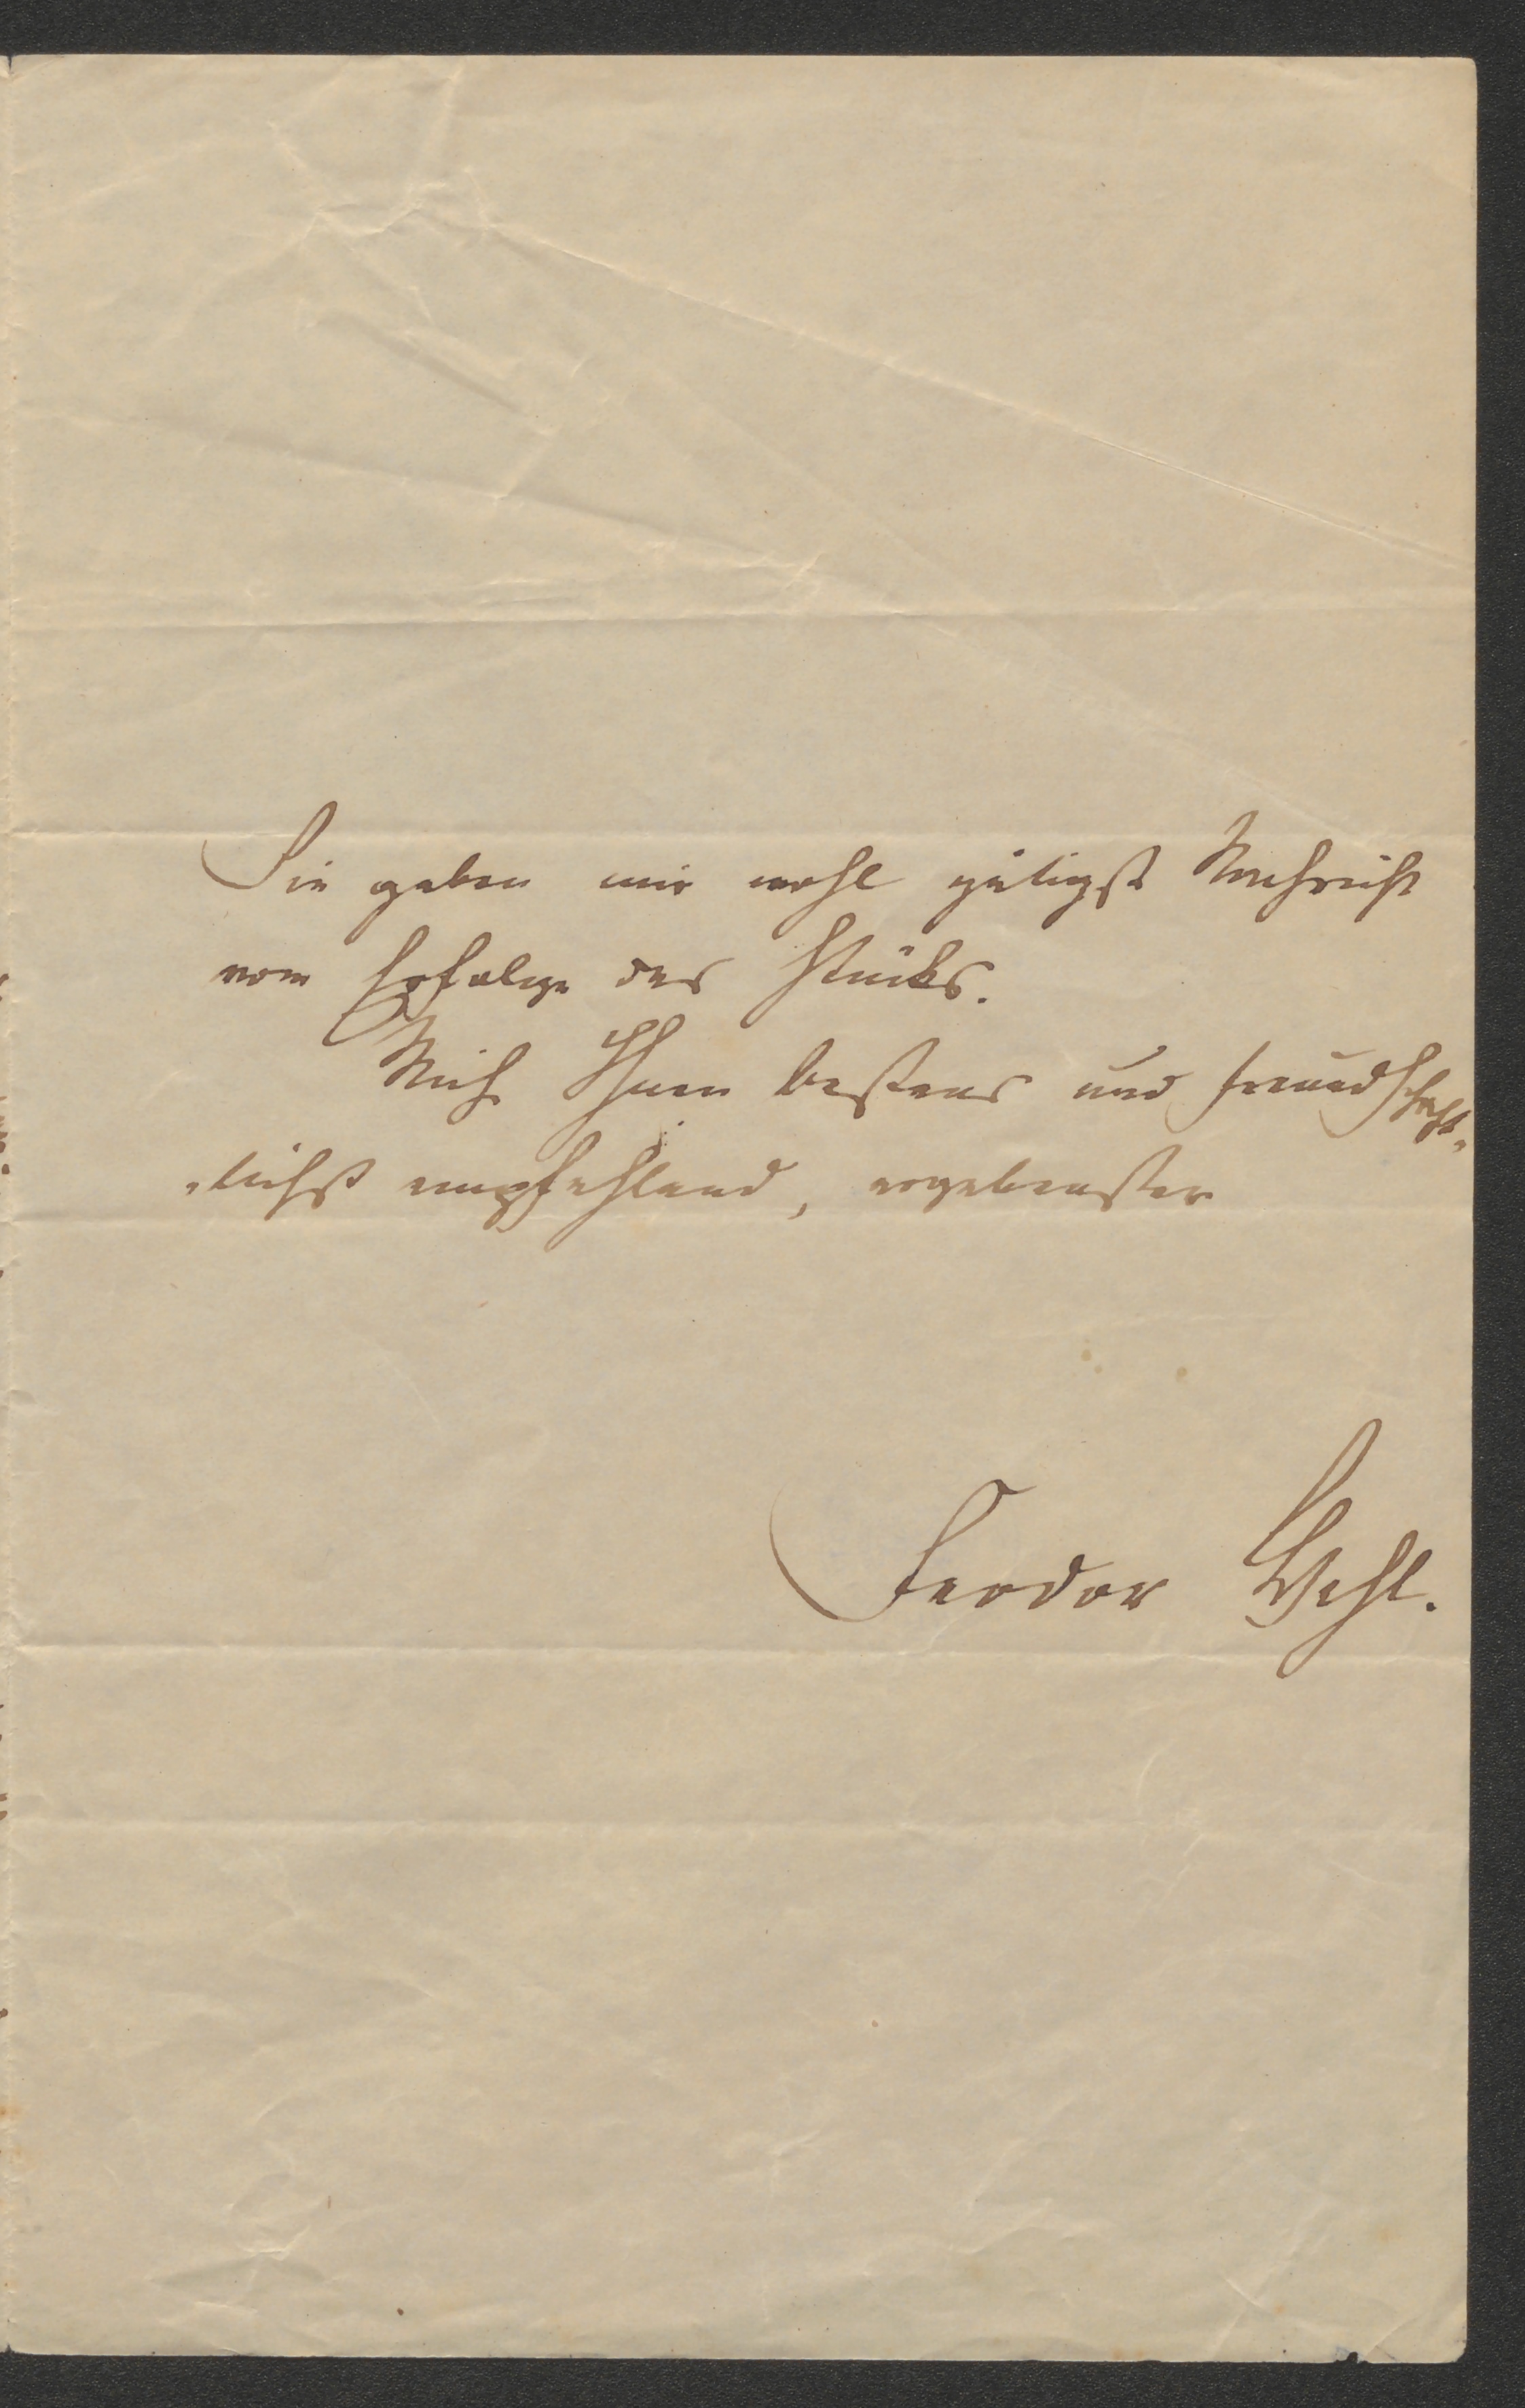 Sie geben mir wohl gütigst Nachricht
vom Erfolge des Stücks.
Mich Ihnen bestens und freundschaft-
-lichst empfehlend, ergebenster
Feodor Wehl.